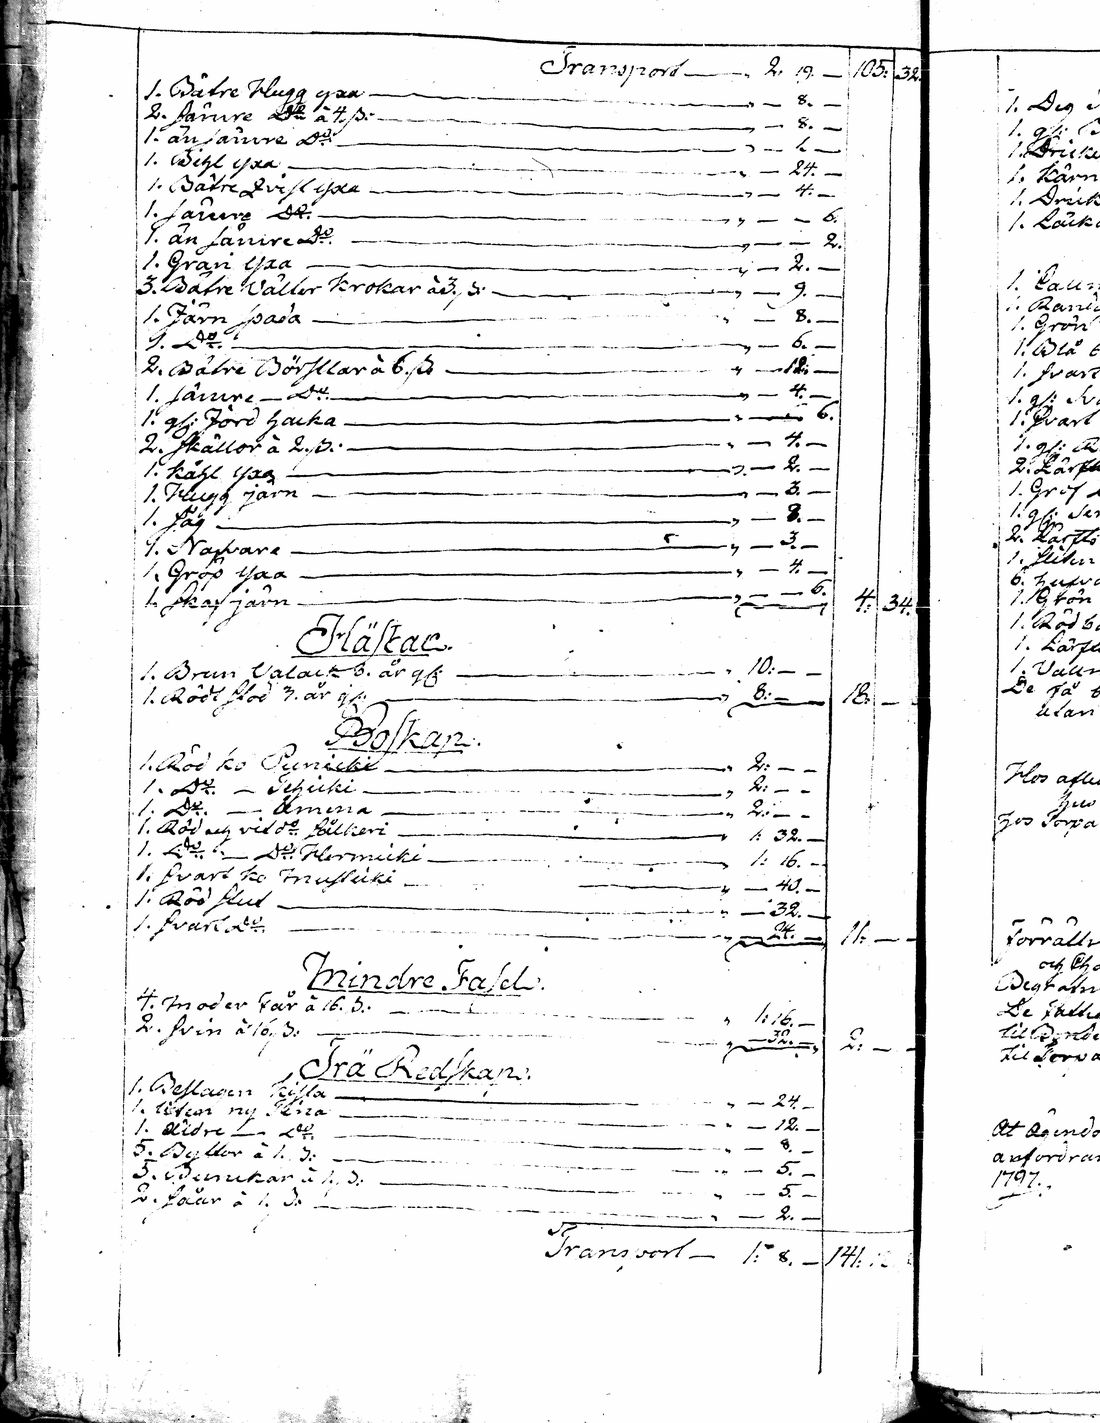 Transport — „ 2. 19. — 105. 32.
1. Bätre Hugg yxa — „ — 8. —
2. sämre Do à 4. ß: — „ — 8. —
1. än sämre Do — „ — 1. —
1. Bihl yxa — „ — 24. —
1. Bätre Qvist yxa — „ — 4. —
1. sämre Do. — „ — — 6.
1. än sämre Do. — „ — — 2.
1. Gran yxa — „ — 2. —
3. Bätre Vällor Krokar à 3. ß: — „ — 9. —
1. Järn spada — „ — 8. —
1. Do. — „ — 6. —
2. Bätre Börstlar à 6. ß — „ — 12. —
1. sämre — Do. — „ — 4. —
1. gl: Jord hacka — „ — — 6.
2. skällor à 2. ß: — „ — 4. —
1. Kåhl yxa — „ — 2. —
1. Hugg järn — „ — 3. —
1. såg — „ — 8. —
1. Nafvare — „ — 3. —
1. Gröp yxa — „ — 4. —
1. skaf järn — „ — — 6. 4. 34.
Hästar.
1. Brun Valack 3. år gl: — „ 10: — —
1. Rödt stod 7. år gl: — „ 8: — — 18. — —
Boskap.
1. Röd ko Punicki — „ 2: — —
1. Do. — — „ 2: — —
1. Do. — Ämena — „ 2: — —
1. Röd och vit do — „ 1: 32. —
1. Do. — Do. Hermicki — „ 1: 16. —
1. svart ko Musticki — „ — 40. —
1. Röd stut — „ — 32. —
1. svart Do. — „ — 24. — 11. — —
Mindre Fäsel.
4. Moder Får à 16. ß. — „ 1: 16. —
2. svin à 16. ß: — „ — 32. — 2: — —
Trä Redskap.
1. Beslagen Kista — „ — 24. —
1. liten ny Tina — „ — 12. —
1. äldre — Do. — „ — 8. —
5. Byttor à 1. ß: — „ — 5. —
5. Bunckar à 1. ß: — „ — 5. —
2. såar à 1. ß: — „ — 2. —
Transport — 1: 8. — 141.
1. Deg
1. gl:
1. Dricke
1. Kärn
1. Drick
1.
1.
1.
1. Grön
1. Blå
1. svart
1. gl:
1. svart
1. gl:
2. Lärft
1. Grof
1. gl:
2. Lärfts
1. sliten
6. hufvu
1. Grön
1. Röd
1. Lärft
1. Vallm
De få
utan
Hos afle
hus
hos Torpa
Förrättn
och
De fatti
til
til Torpa
At ägendo
anfordran
1797.